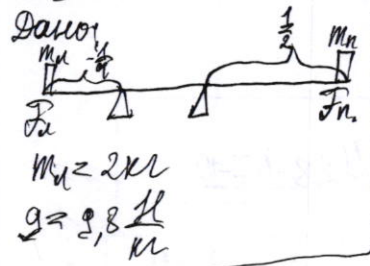 Дано:
mл -1/4 1/2 mп
Fл Fп.
mл = 2 кг
g = 9,8 Н/кг